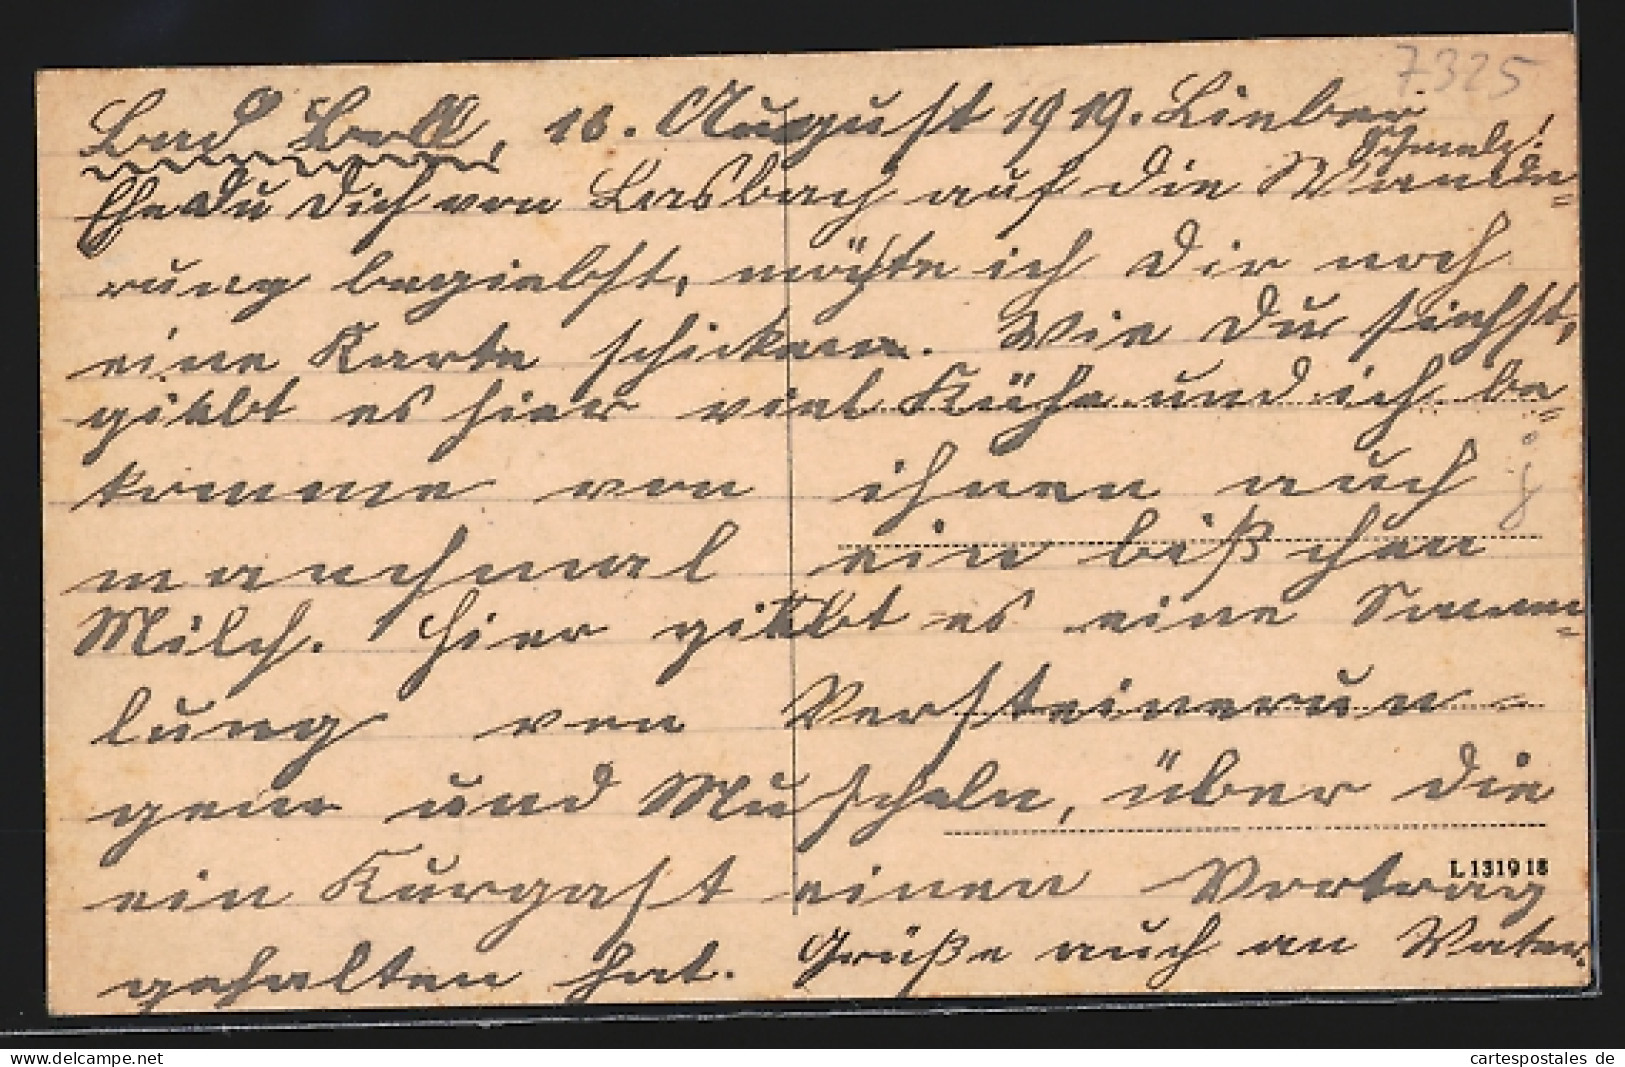 7325
Bad Boll, 18. August 1919. Lieber
Schmelz!
Ehe Du Dich von Lorsbach auf die Wande=
rung begiebst, möchte ich Dir noch
eine Karte schicken. Wie Du siehst,
giebt es hier viel Kühe und ich be=
komme von ihnen auch
manchmal ein bißchen
Milch. Hier giebt es eine Samm=
lung von Versteinerun=
gen und Muscheln, über die
ein Kurgast einen Vortrag
L 1319 18
gehalten hat. Grüße auch an Vater.
cartespostales de